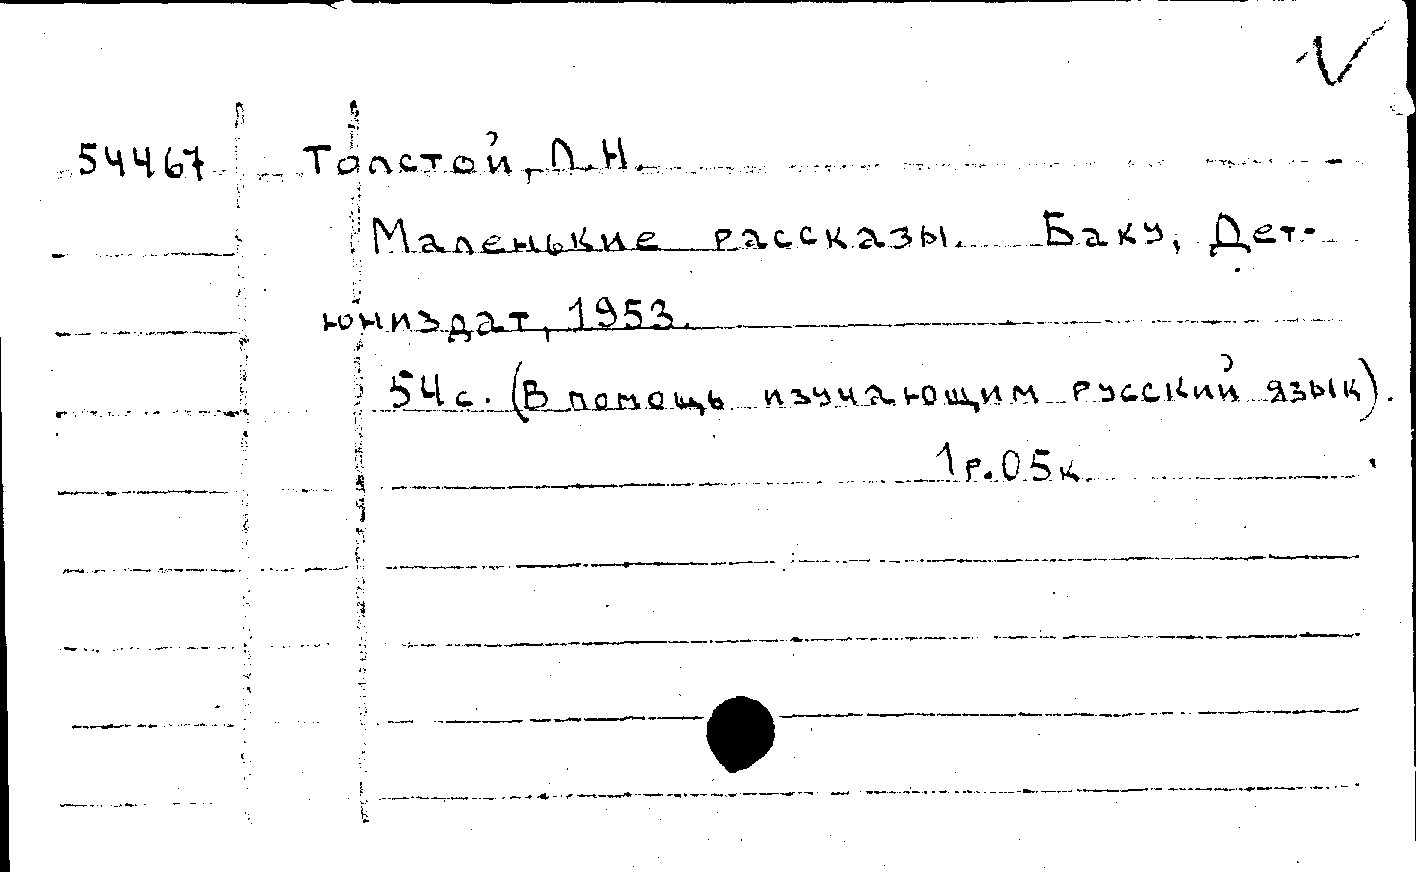 54467 Толстой, Л.Н.
Маленькие рассказы. Баку, Дет-
юниздат, 1953.
54 с. (В помощь изучающим русский язык).
1р.05к.